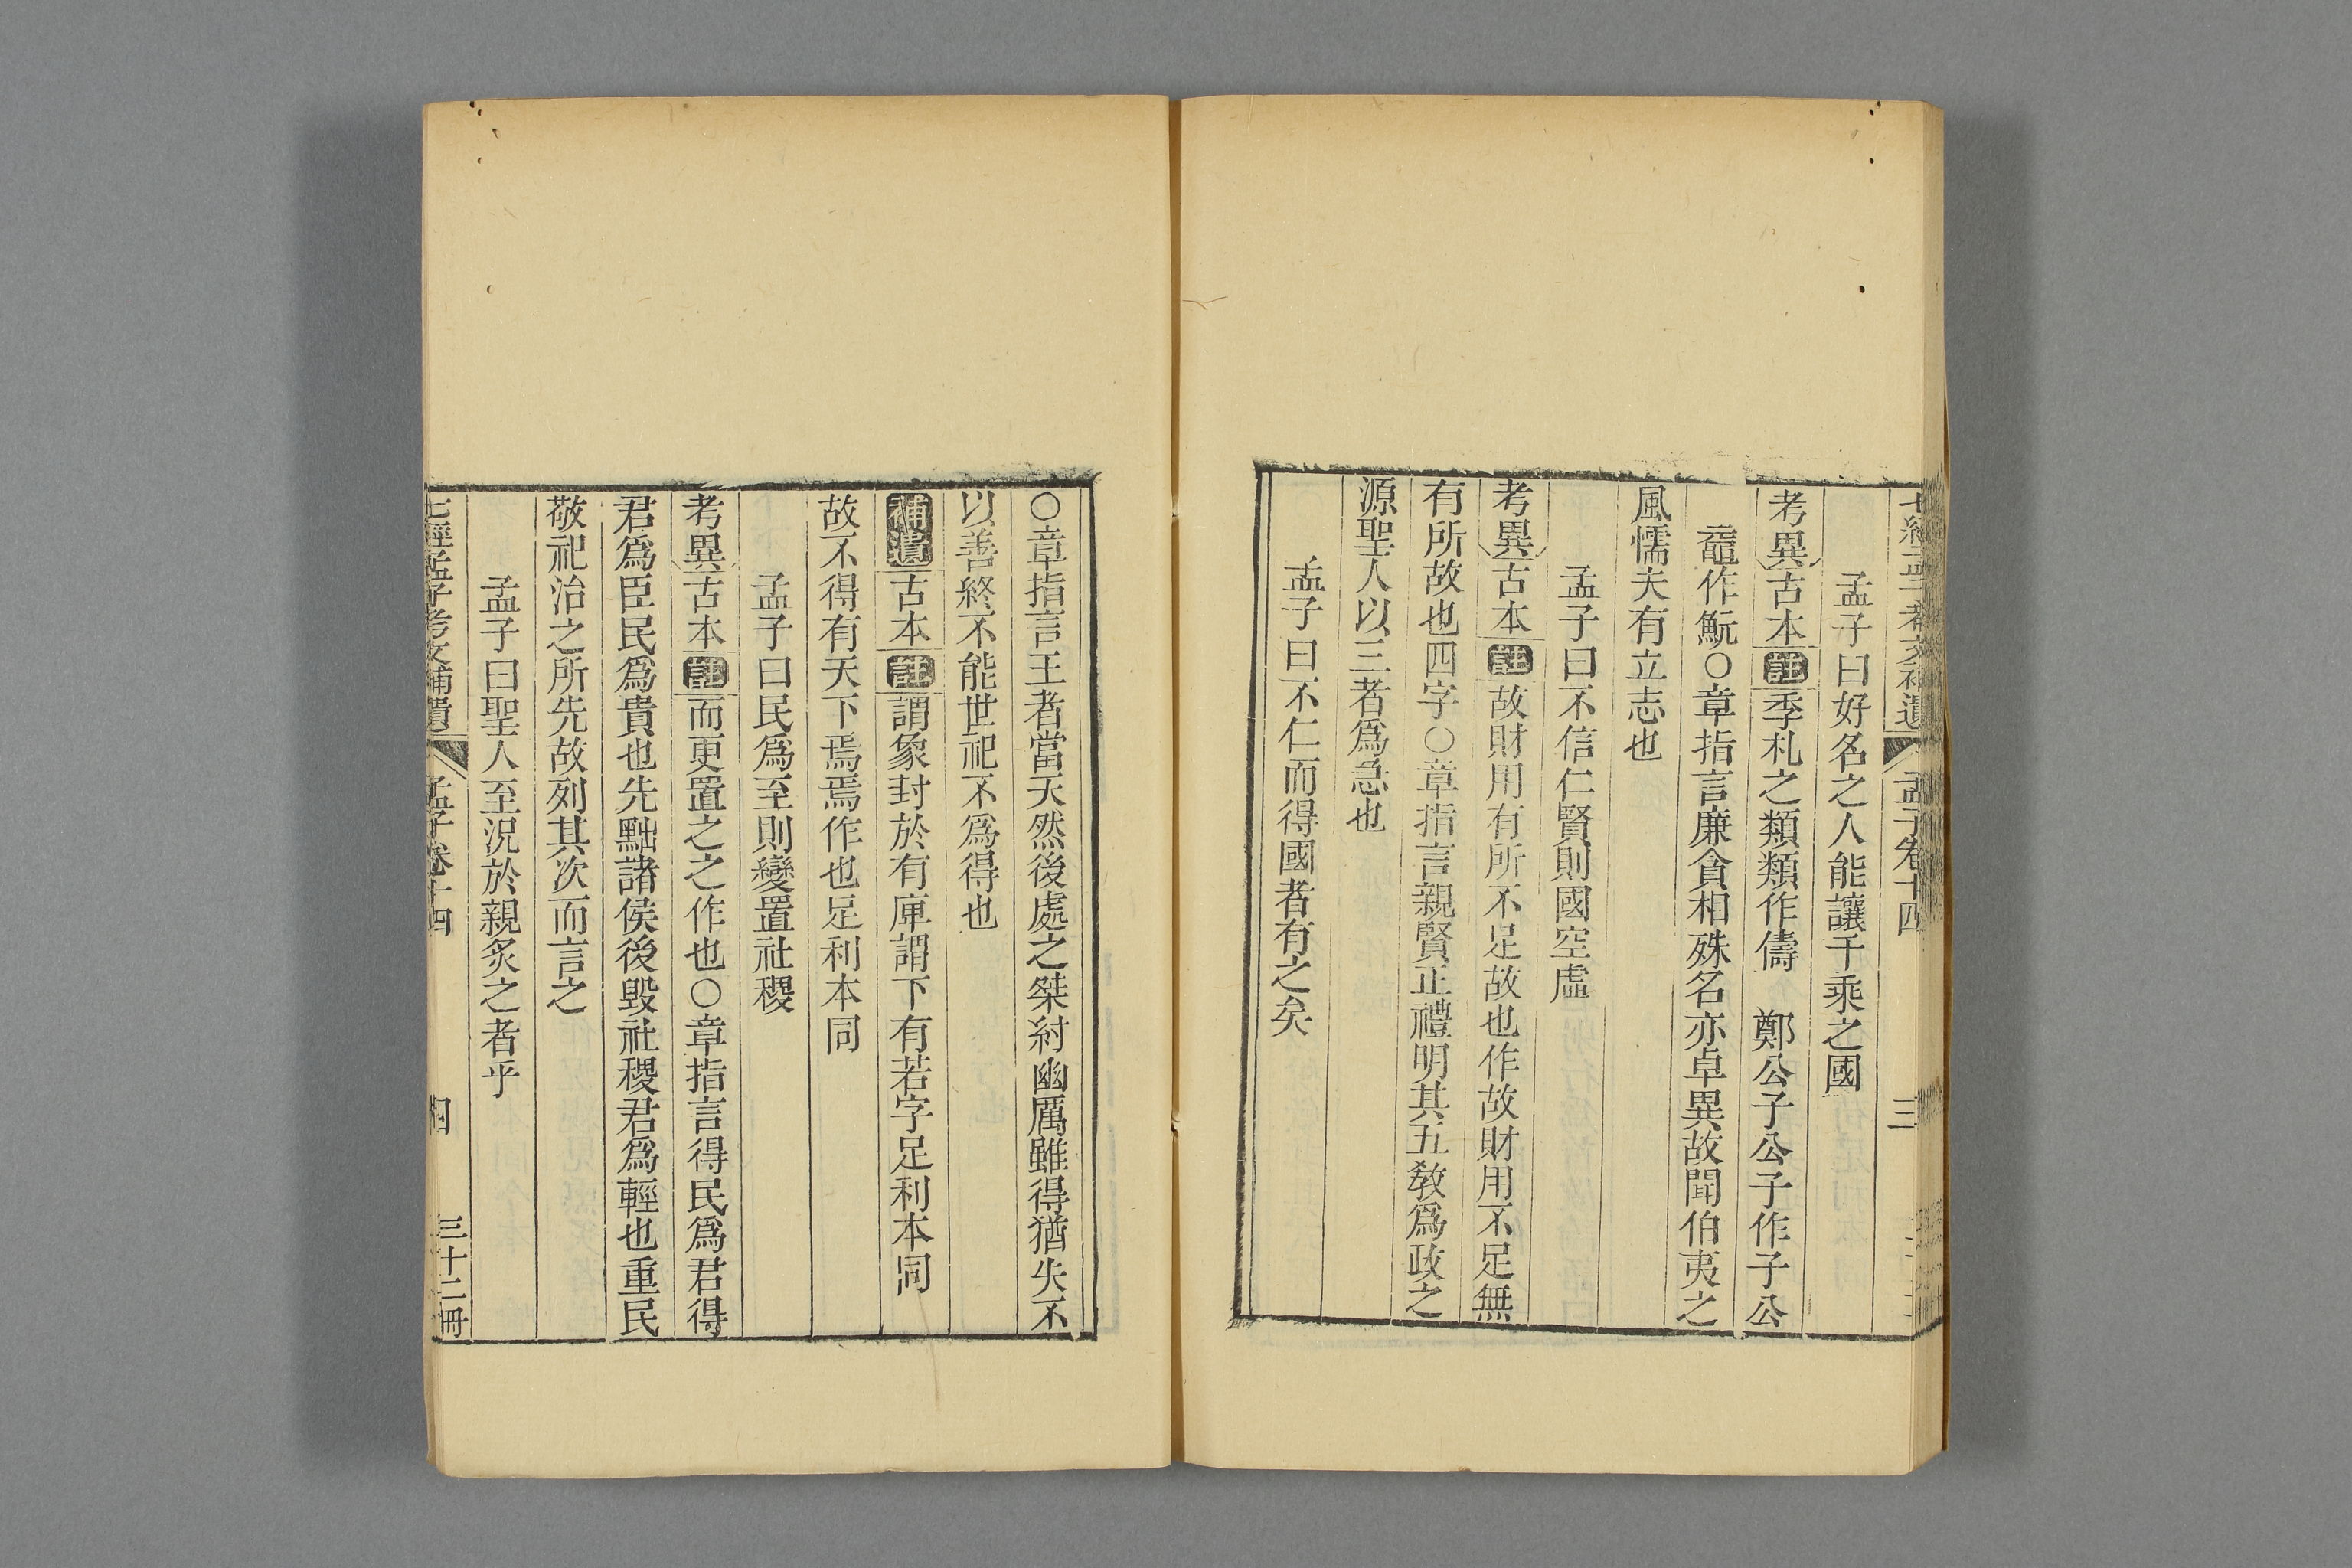 七經孟子考文補遺 孟子卷十四 三
孟子曰好名之人能讓千乘之國
考異古本註季札之類類作儔 鄭公子公子作子公
黿作魭○章指言廉貪相殊名亦卓異故聞伯夷之
風懦夫有立志也
孟子曰不信仁賢則國空虛
考異古本註故財用有所不足故也作故財用不足無
有所故也四字○章指言親賢正禮明其五敎爲政之
源聖人以三者爲急也
孟子曰不仁而得國者有之矣
○章指言王者當天然後處之桀紂幽厲雖得猶失不
以善終不能世祀不爲得也
補遺古本註謂象封於有庳謂下有若字足利本同
故不得有天下焉焉作也足利本同
孟子曰民爲至則變置社稷
考異古本註而更置之之作也○章指言得民爲君得
君爲臣民爲貴也先黜諸侯後毀社稷君爲輕也重民
敬祀治之所先故列其次而言之
孟子曰聖人至況於親炙之者乎
七經孟子考文補遺 孟子卷十四 四 三十二冊